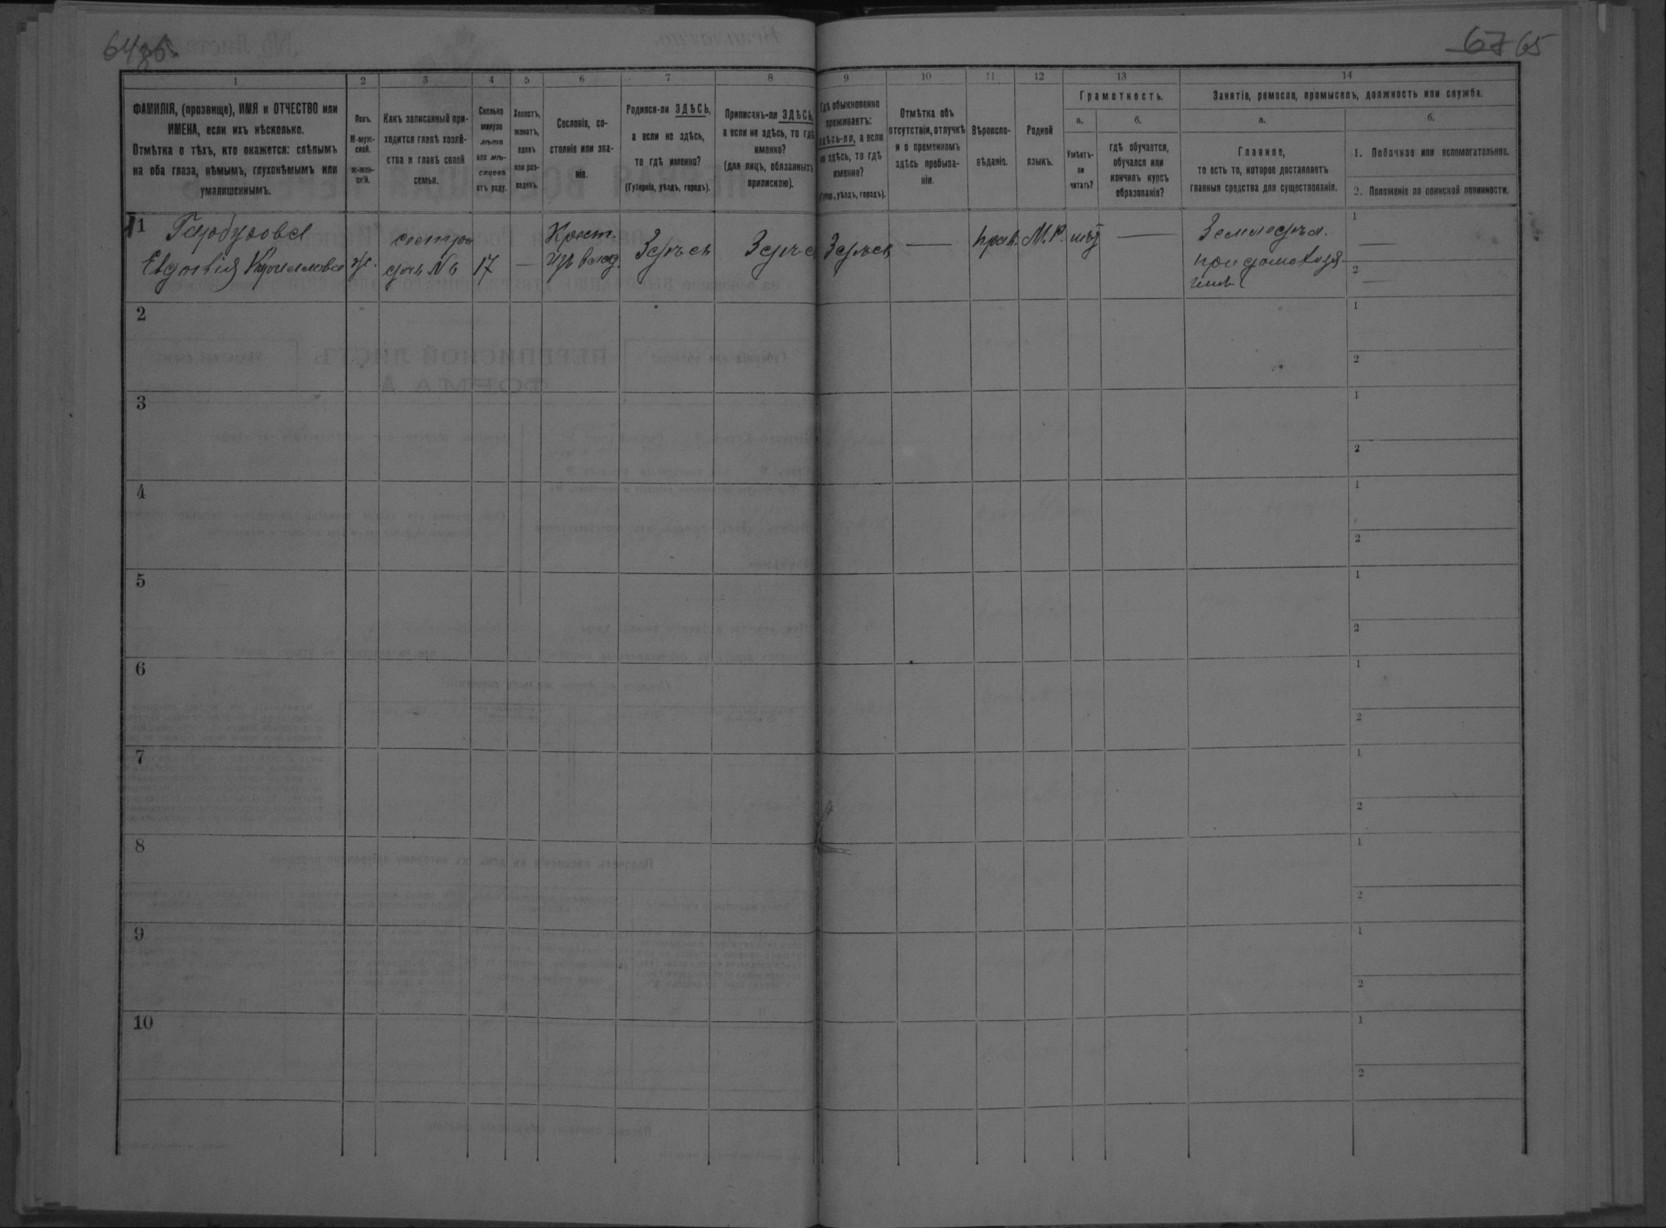 67 65
1 2 3 4 5 6 7 8 9 10 11 12 13 14
ФАМИЛІЯ, (прозвище), ИМЯ и ОТЧЕСТВО или
ИМЕНА, если ихъ нѣсколько.
Отмѣтка о тѣхъ, кто окажется: слѣпымъ
на оба глаза, нѣмымъ, глухонѣмымъ или
умалишеннымъ.
Полъ.
М-муж-
ской.
Ж-жен-
скій.
Какъ записанный при-
ходится главѣ хозяй-
ства и главѣ своей
семьи.
Сколько
минуло
лѣтъ
или мѣ-
сяцевъ
отъ роду.
Холостъ,
женатъ,
вдовъ
или раз-
веденъ.
Сословіе, со-
стояніе или зва-
ніе.
Родился-ли ЗДѢСЬ,
а если не здѣсь,
то гдѣ именно?
(Губернія, уѣздъ, городъ).
Приписанъ-ли ЗДѢСЬ,
а если не здѣсь, то гдѣ
именно?
(для лицъ, обязанныхъ
припискою).
Гдѣ обыкновенно
проживаетъ:
здѣсь-ли, а если
не здѣсь, то гдѣ
именно?
(Губ., уѣздъ, городъ).
Отмѣтка объ
отсутствіи, отлучкѣ
и о временномъ
здѣсь пребыва-
ніи.
Вѣроиспо-
вѣданіе.
Родной
языкъ.
Грамотность.
а.
Умѣетъ-
ли
читать?
б.
гдѣ обучается,
обучался или
кончилъ курсъ
образованія?
Занятіе, ремесло, промыселъ, должность или служба.
а.
Главное,
то есть то, которое доставляетъ
главныя средства для существованія.
б.
1. Побочное или вспомогательное.
2. Положеніе по воинской повинности.
1
Горбунова
Евдокія Кирилловна
ж.
сестра
17
—
Крест.
Здѣсь
Здѣсь
Здѣсь
—
прав.
М.Р.
нѣт
—
Земледѣл.
1 —
2 —
2 1
2
3 1
2
4 1
2
5 1
2
6 1
2
7 1
2
8 1
2
9 1
2
10 1
2